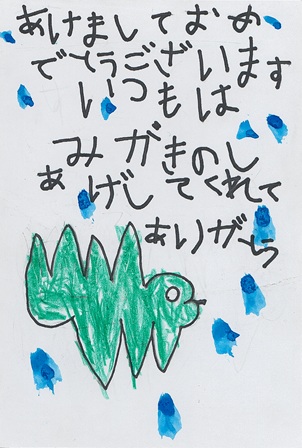 あけましておめ
でとうございます
いつもは
みがきのし
あげしてくれて
ありがとう